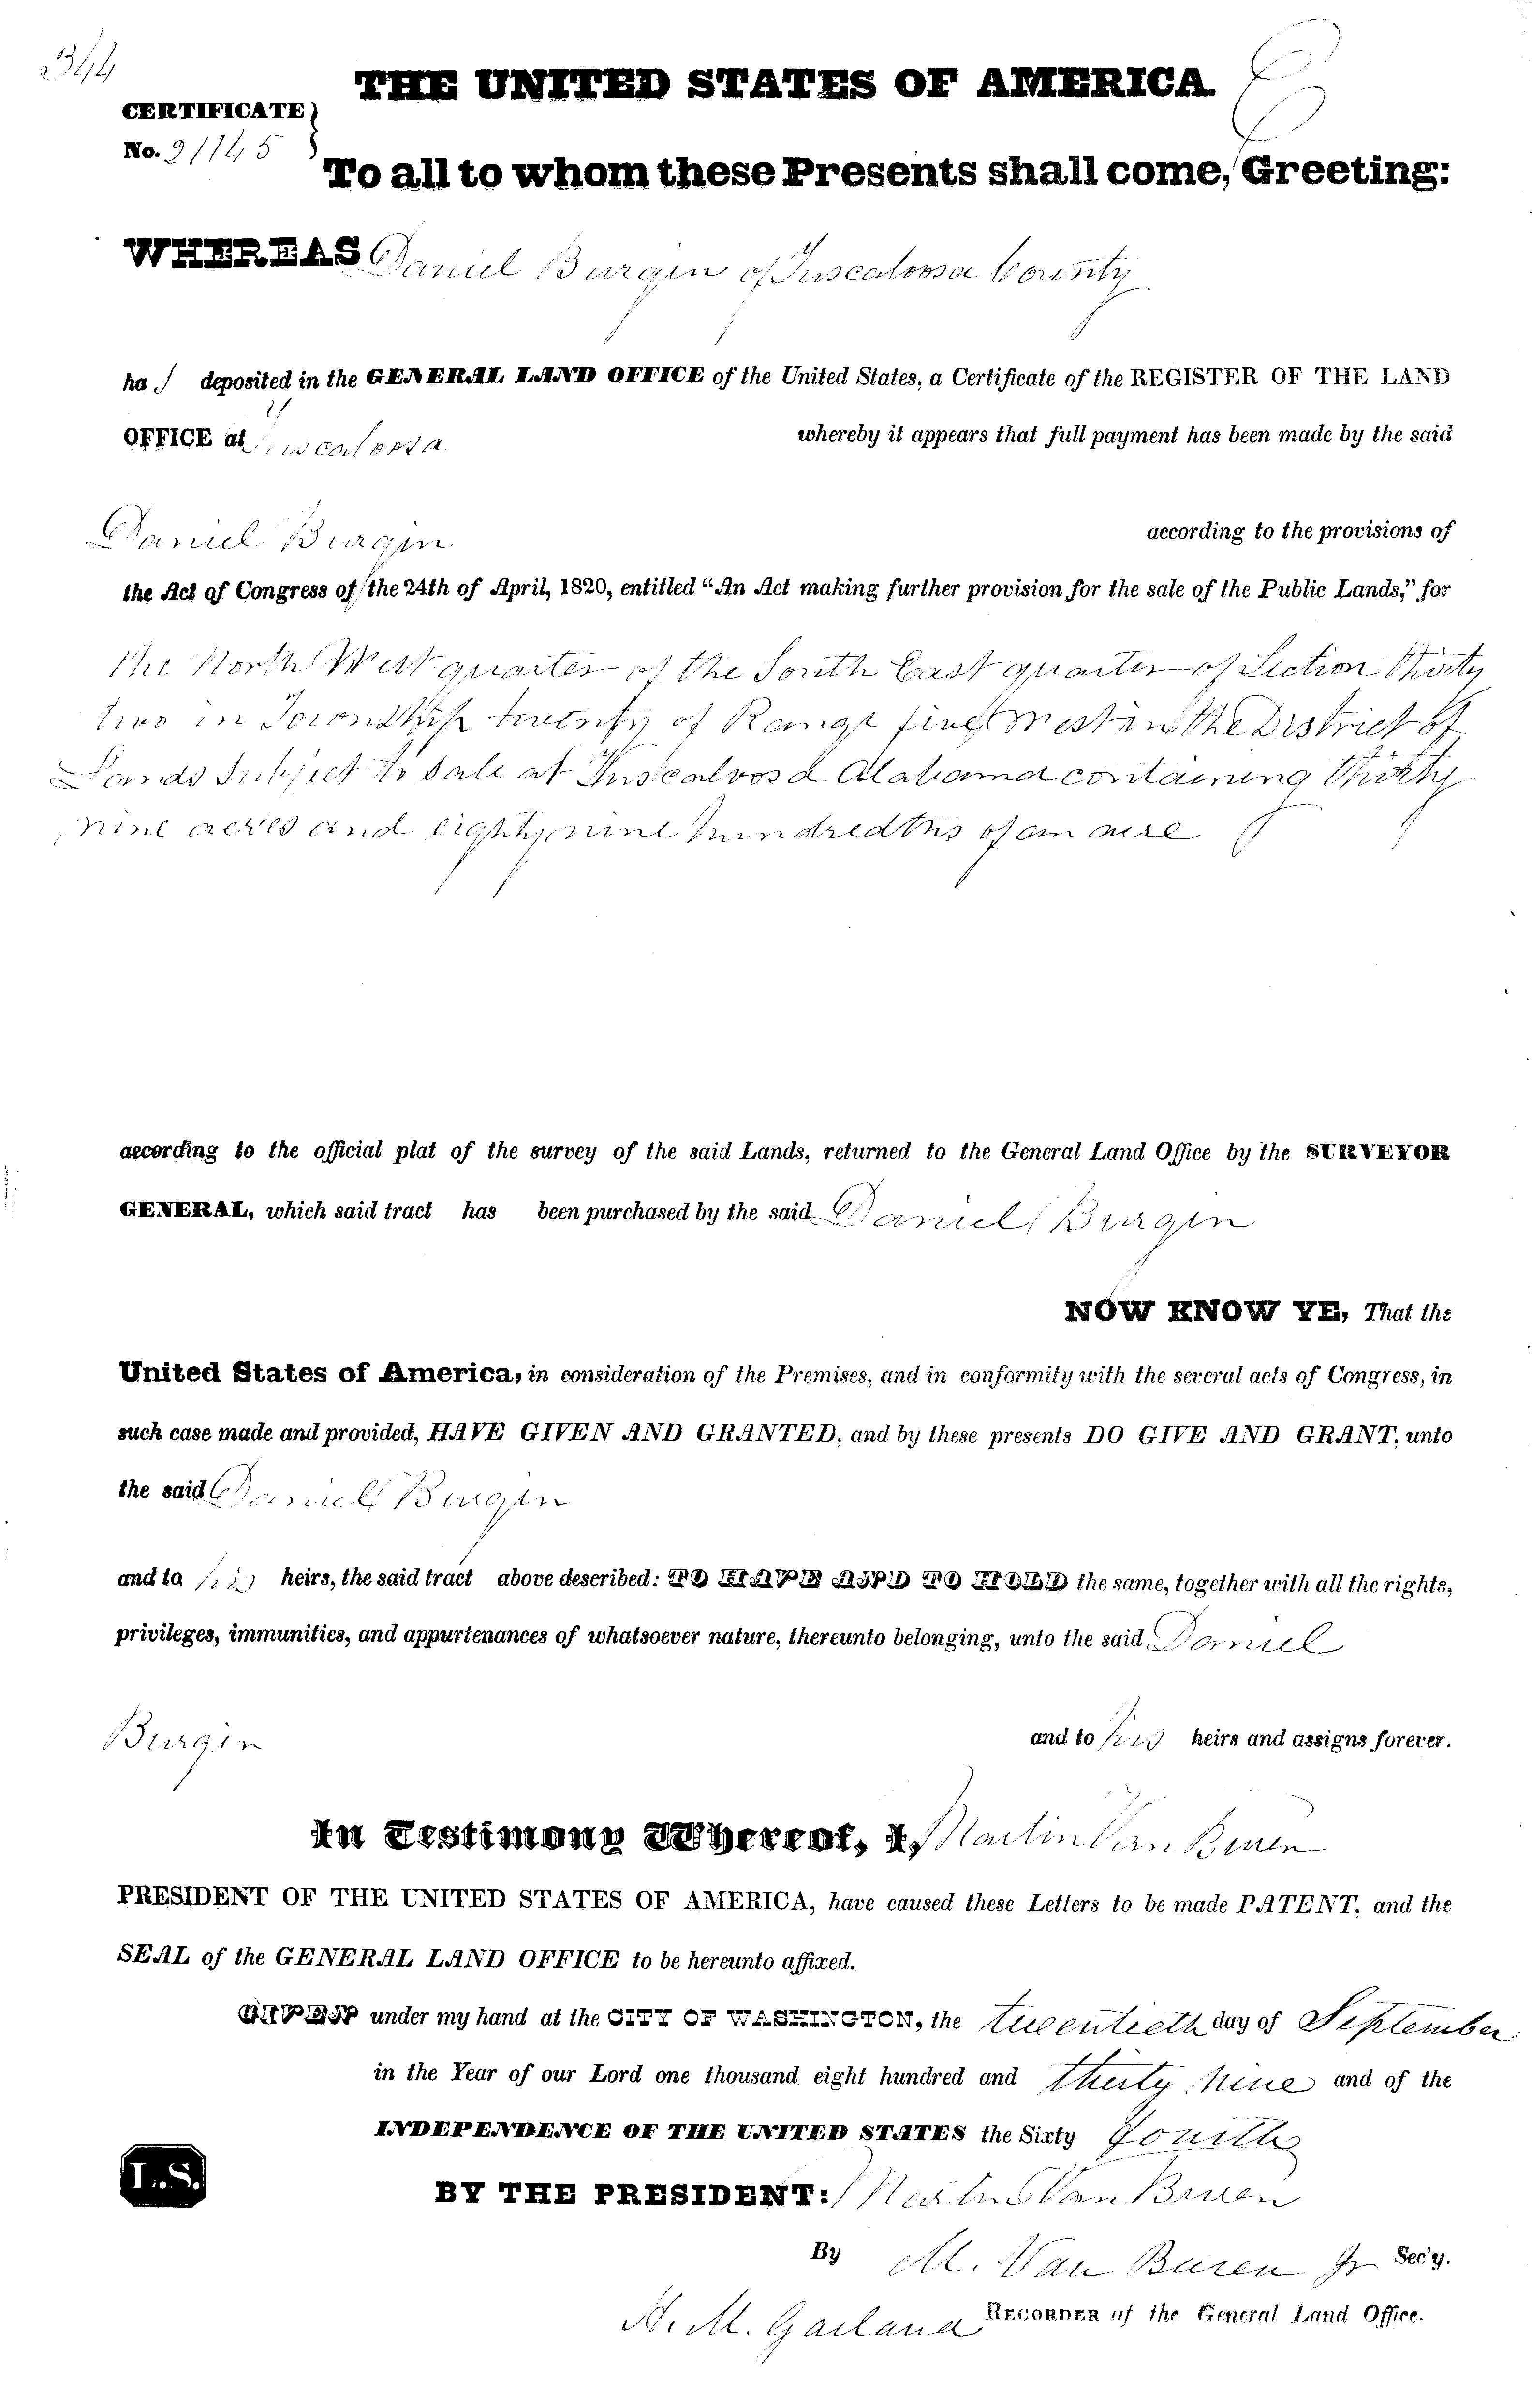 344
THE UNITED STATES OF AMERICA.
CERTIFICATE
No. 21145
To all to whom these Presents shall come, Greeting:
WHEREAS Daniel Burgin of Tuscaloosa County
ha s deposited in the GENERAL LAND OFFICE of the United States, a Certificate of the REGISTER OF THE LAND
OFFICE at Tuscaloosa whereby it appears that full payment has been made by the said
Daniel Burgin according to the provisions of
the Act of Congress of the 24th of April, 1820, entitled “An Act making further provision for the sale of the Public Lands,” for
the North West quarter of the South East quarter of Section thirty
two in Township twenty of Range five West in the District of
Lands subject to sale at Tuscaloosa Alabama containing thirty
nine acres and eighty nine hundredths of an acre
according to the official plat of the survey of the said Lands, returned to the General Land Office by the SURVEYOR
GENERAL, which said tract has been purchased by the said Daniel Burgin
NOW KNOW YE, That the
United States of America, in consideration of the Premises, and in conformity with the several acts of Congress, in
such case made and provided, HAVE GIVEN AND GRANTED, and by these presents DO GIVE AND GRANT, unto
the said Daniel Burgin
and to his heirs, the said tract above described: TO HAVE AND TO HOLD the same, together with all the rights,
privileges, immunities, and appurtenances of whatsoever nature, thereunto belonging, unto the said Daniel
Burgin and to his heirs and assigns forever.
In Testimony Whereof, I, Martin Van Buren
PRESIDENT OF THE UNITED STATES OF AMERICA, have caused these Letters to be made PATENT, and the
SEAL of the GENERAL LAND OFFICE to be hereunto affixed.
GIVEN under my hand at the CITY OF WASHINGTON, the twentieth day of September
in the Year of our Lord one thousand eight hundred and thirty nine and of the
INDEPENDENCE OF THE UNITED STATES the Sixty fourth
L.S.
BY THE PRESIDENT: Martin Van Buren
By M. Van Buren Jr Sec'y.
H. M. Garland RECORDER of the General Land Office.